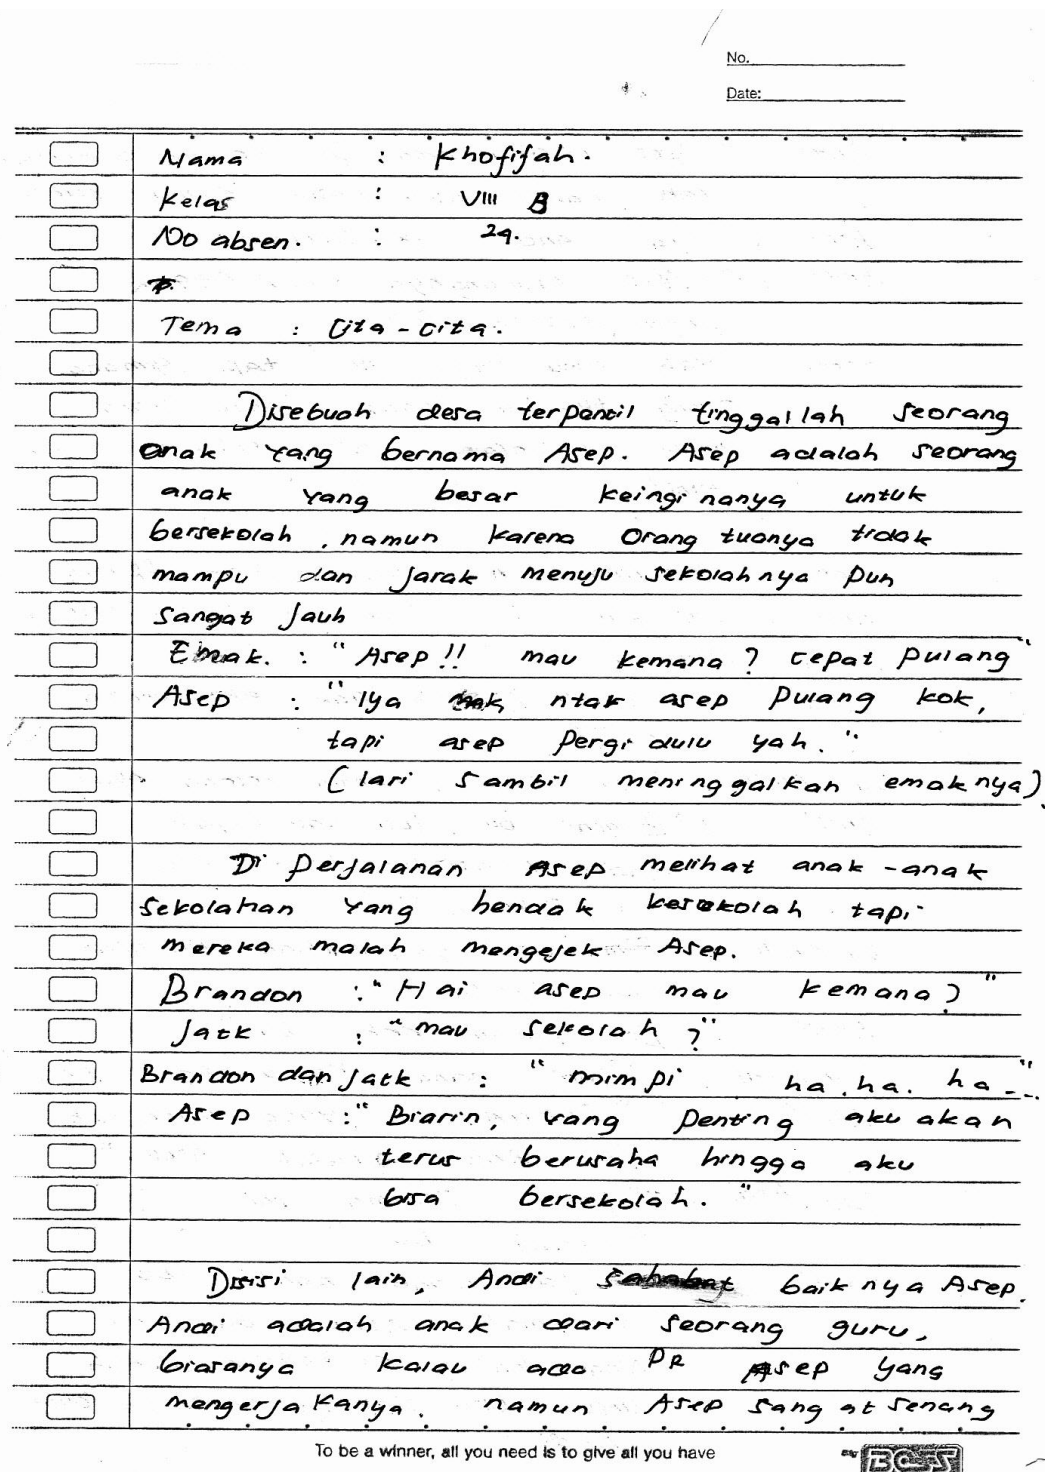 No.
Date:
Nama : Khofifah.
Kelas : VIII B
No absen. : 29.
Tema : Cita - cita.
Disebuah desa terpencil tinggallah seorang
anak yang bernama Asep. Asep adalah seorang
anak yang besar keinginanya untuk
bersekolah, namun karena orang tuanya tidak
mampu dan jarak menuju sekolahnya pun
sangat jauh
Emak. : "Asep!! mau kemana? cepat pulang"
Asep : "Iya mak, ntar asep pulang kok,
tapi asep pergi dulu yah."
(lari sambil meninggalkan emaknya).
Di perjalanan Asep melihat anak-anak
sekolahan yang hendak kesekolah tapi
mereka malah mengejek Asep.
Brandon : "Hai asep mau kemana?"
Jack : "mau sekolah?"
Brandon dan Jack : "mimpi ha. ha. ha..."
Asep : "Biarin, yang penting aku akan
terus berusaha hingga aku
bisa bersekolah."
Disisi lain, Andi sahabat baiknya Asep.
Andi adalah anak dari seorang guru,
biasanya kalau ada PR Asep yang
mengerjakanya. namun Asep sangat senang
To be a winner, all you need is to give all you have
by BOSS